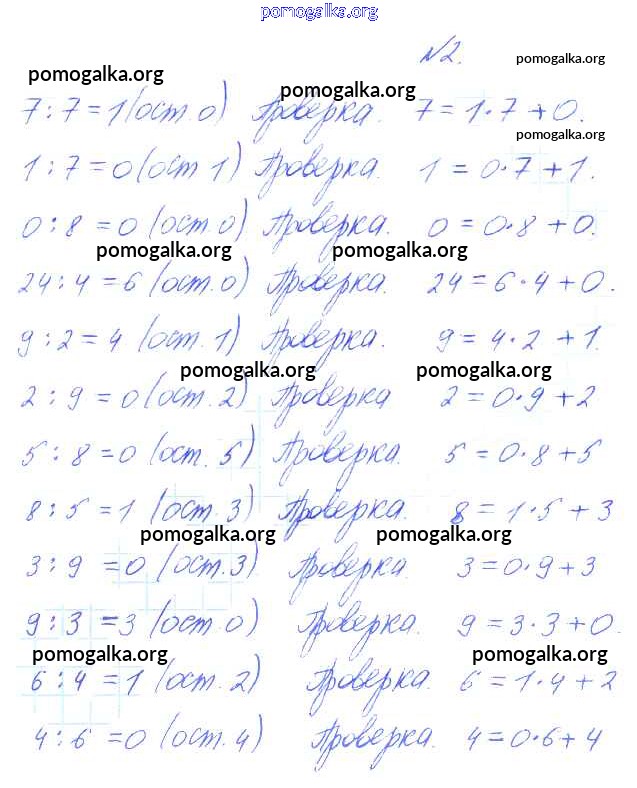 pomogalka.org
№2.
pomogalka.org
pomogalka.org
pomogalka.org
7 : 7 = 1 (ост. 0) Проверка. 7 = 1 · 7 + 0.
pomogalka.org
1 : 7 = 0 (ост 1) Проверка. 1 = 0 · 7 + 1.
0 : 8 = 0 (ост. 0) Проверка. 0 = 0 · 8 + 0.
pomogalka.org pomogalka.org
24 : 4 = 6 (ост. 0) Проверка. 24 = 6 · 4 + 0.
9 : 2 = 4 (ост. 1) Проверка. 9 = 4 · 2 + 1.
pomogalka.org pomogalka.org
2 : 9 = 0 (ост. 2) Проверка 2 = 0 · 9 + 2
5 : 8 = 0 (ост. 5) Проверка. 5 = 0 · 8 + 5
8 : 5 = 1 (ост. 3) Проверка. 8 = 1 · 5 + 3
pomogalka.org pomogalka.org
3 : 9 = 0 (ост. 3) Проверка. 3 = 0 · 9 + 3
9 : 3 = 3 (ост. 0) Проверка. 9 = 3 · 3 + 0.
pomogalka.org pomogalka.org
6 : 4 = 1 (ост. 2) Проверка. 6 = 1 · 4 + 2
4 : 6 = 0 (ост. 4) Проверка. 4 = 0 · 6 + 4